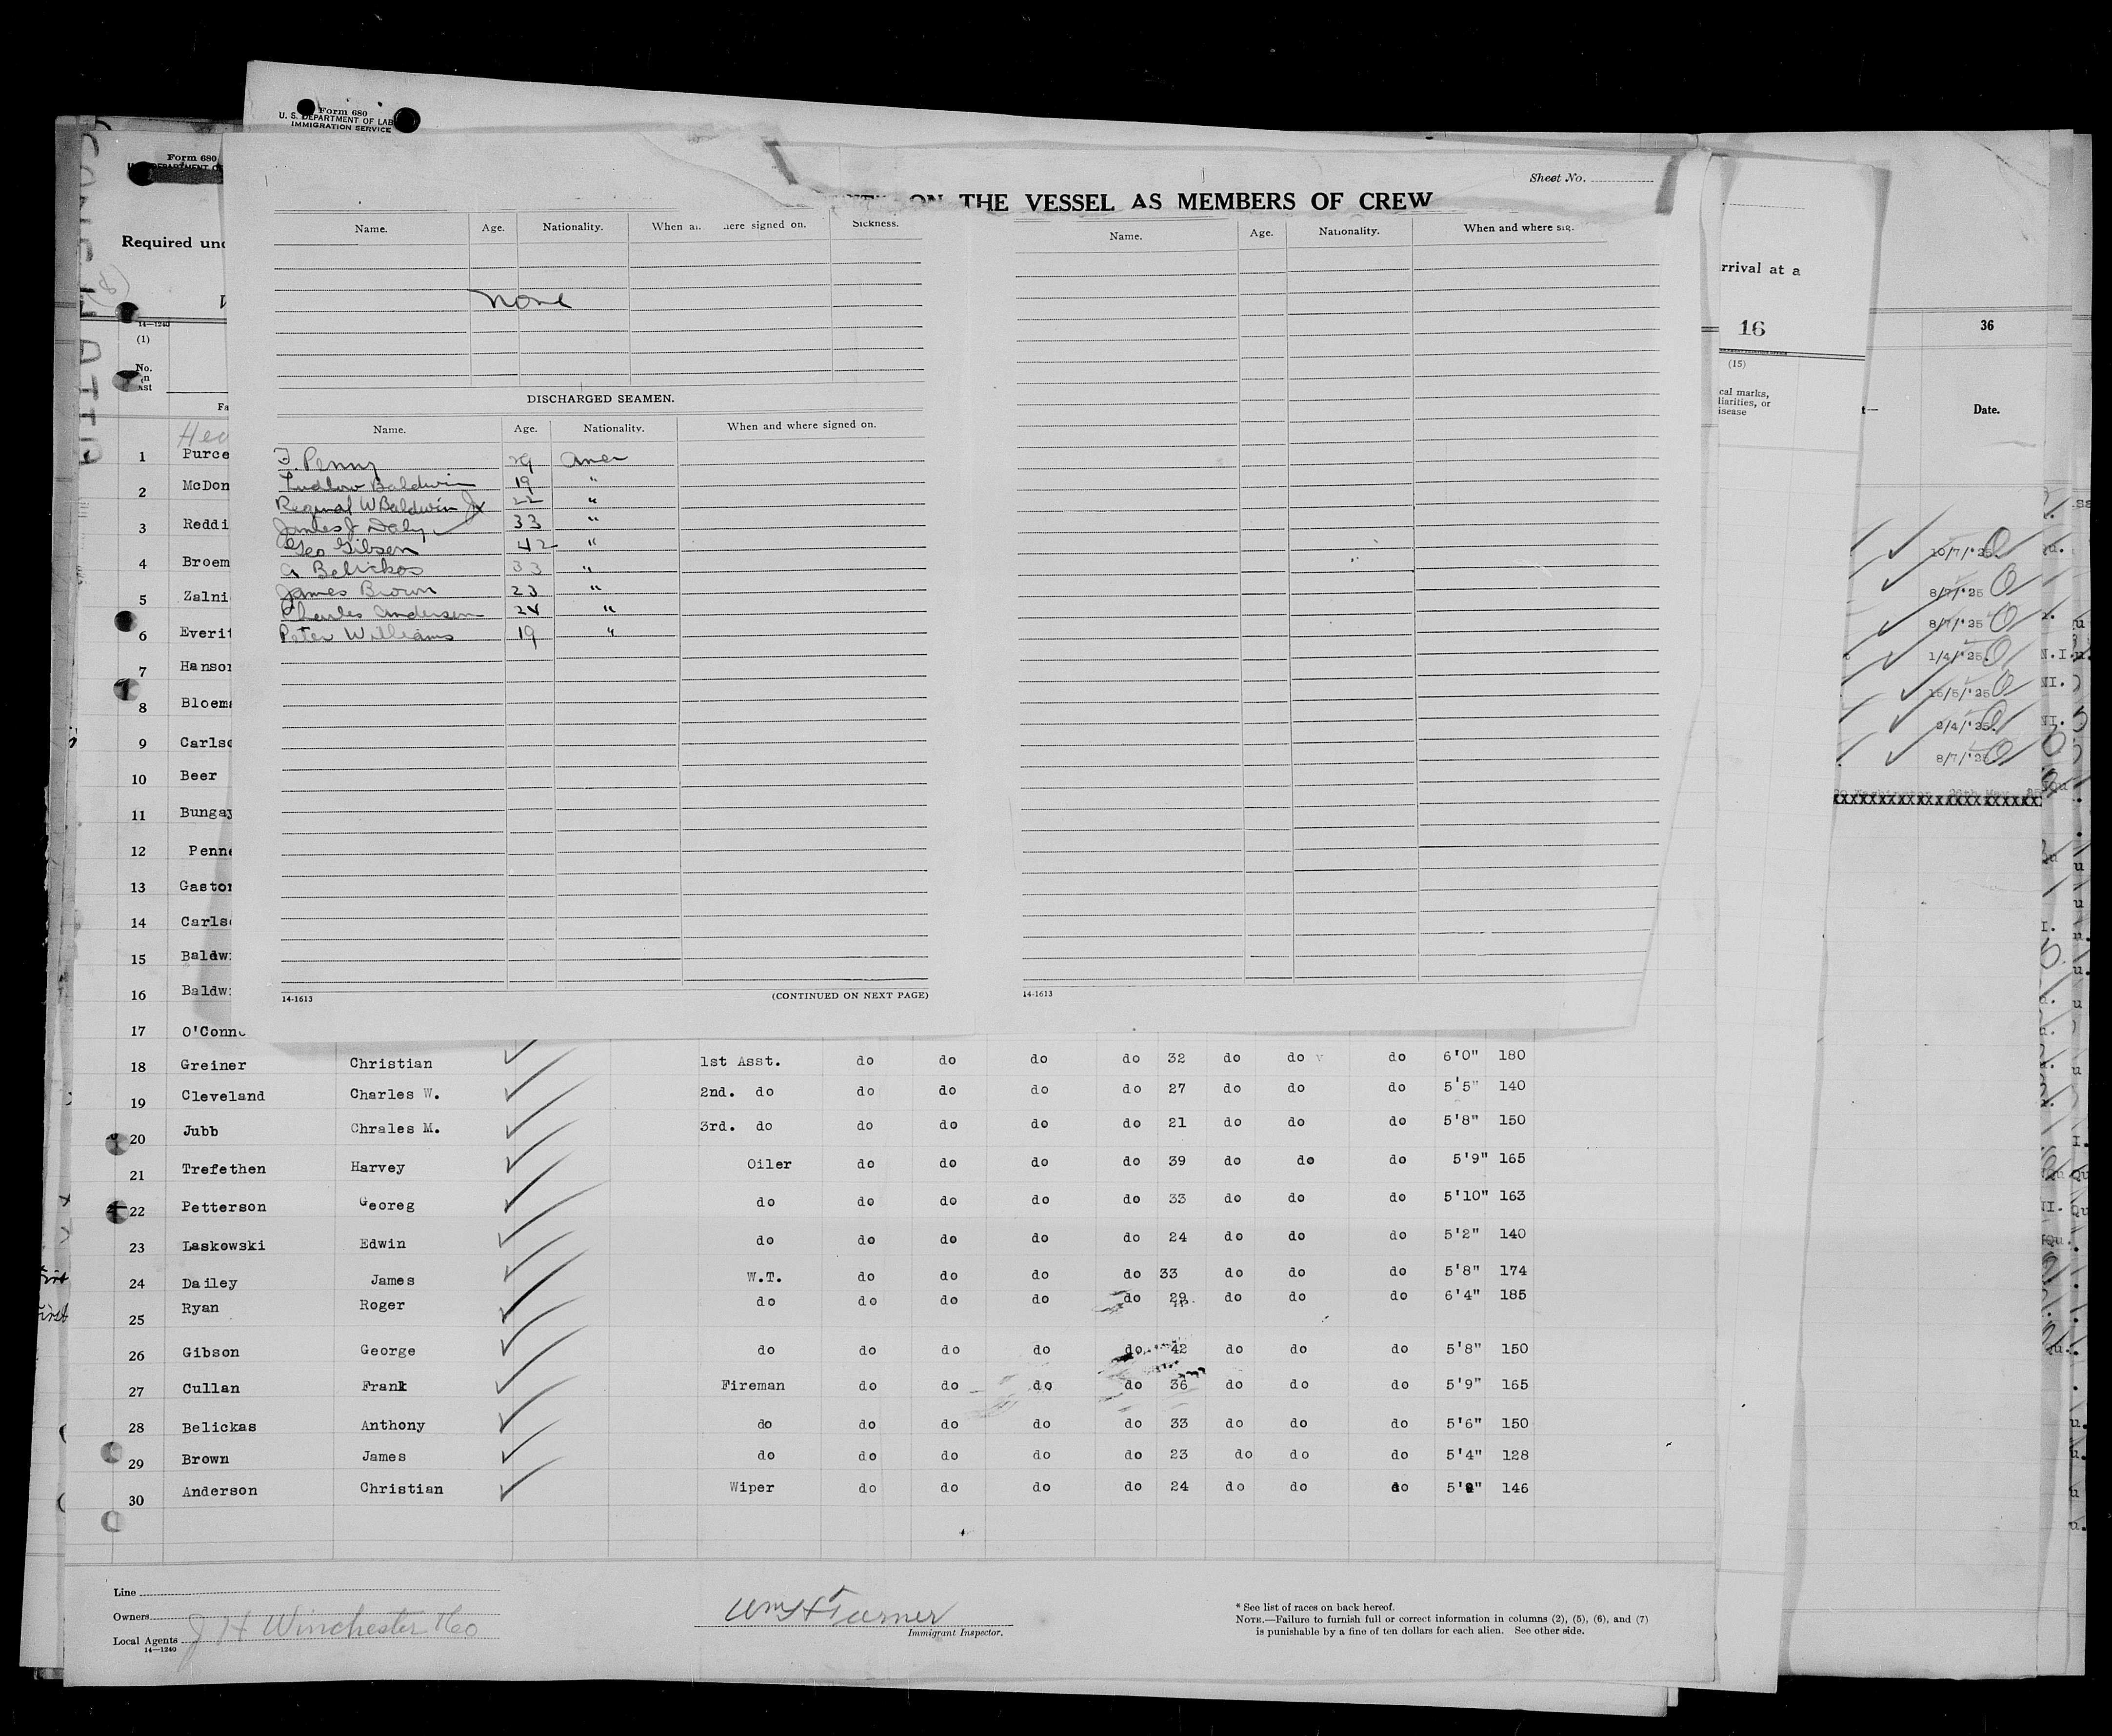 Form 680
U. S. DEPARTMENT OF LAB
IMMIGRATION SERVICE
Form 680
Sheet No.
ON THE VESSEL AS MEMBERS OF CREW
Required und
Name. Age. Nationality. When a. here signed on. Sickness.
None
DISCHARGED SEAMEN.
Name. Age. Nationality. When and where signed on.
F. Penny 29 Amer
Ludlow Baldwin 19 "
Reginal W Baldwin Jr 22 "
James J Daly 33 "
Geo Gibson 42 "
A Belickos 33 "
James Brown 23 "
Charles Andersen 24 "
Peter Williams 19 "
14-1613 (CONTINUED ON NEXT PAGE)
Name. Age. Nationality. When and where sig.
14-1613
rrival at a
16
(15)
cal marks,
liarities, or
isease
36
Date.
10/7/'25
8/7/'25
8/7/'25
1/4/'25.
15/5/'25
2/4/'25.
8/7/'25
14-1240
(1)
No.
1 Purce
2 McDon
3 Reddi
4 Broem
5 Zalni
6 Everit
7 Hanson
8 Bloema
9 Carlso
10 Beer
11 Bungay
12 Penne
13 Gaston
14 Carlso
15 Baldwi
16 Baldwi
17 O'Conno
18 Greiner Christian 1st Asst. do do do do 32 do do do 6'0" 180
19 Cleveland Charles W. 2nd. do do do do do 27 do do do 5'5" 140
20 Jubb Chrales M. 3rd. do do do do do 21 do do do 5'8" 150
21 Trefethen Harvey Oiler do do do do 39 do do do 5'9" 165
22 Petterson Georeg do do do do do 33 do do do 5'10" 163
23 Laskowski Edwin do do do do do 24 do do do 5'2" 140
24 Dailey James W.T. do do do do 33 do do do 5'8" 174
25 Ryan Roger do do do do do 29 do do do 6'4" 185
26 Gibson George do do do do do 42 do do do 5'8" 150
27 Cullan Frank Fireman do do do do 36 do do do 5'9" 165
28 Belickas Anthony do do do do do 33 do do do 5'6" 150
29 Brown James do do do do do 23 do do do 5'4" 128
30 Anderson Christian Wiper do do do do 24 do do do 146
Line
Owners
Local Agents J H Winchester & Co
14-1240
Wm H Turner
Immigrant Inspector.
* See list of races on back hereof.
NOTE.—Failure to furnish full or correct information in columns (2), (5), (6), and (7)
is punishable by a fine of ten dollars for each alien. See other side.